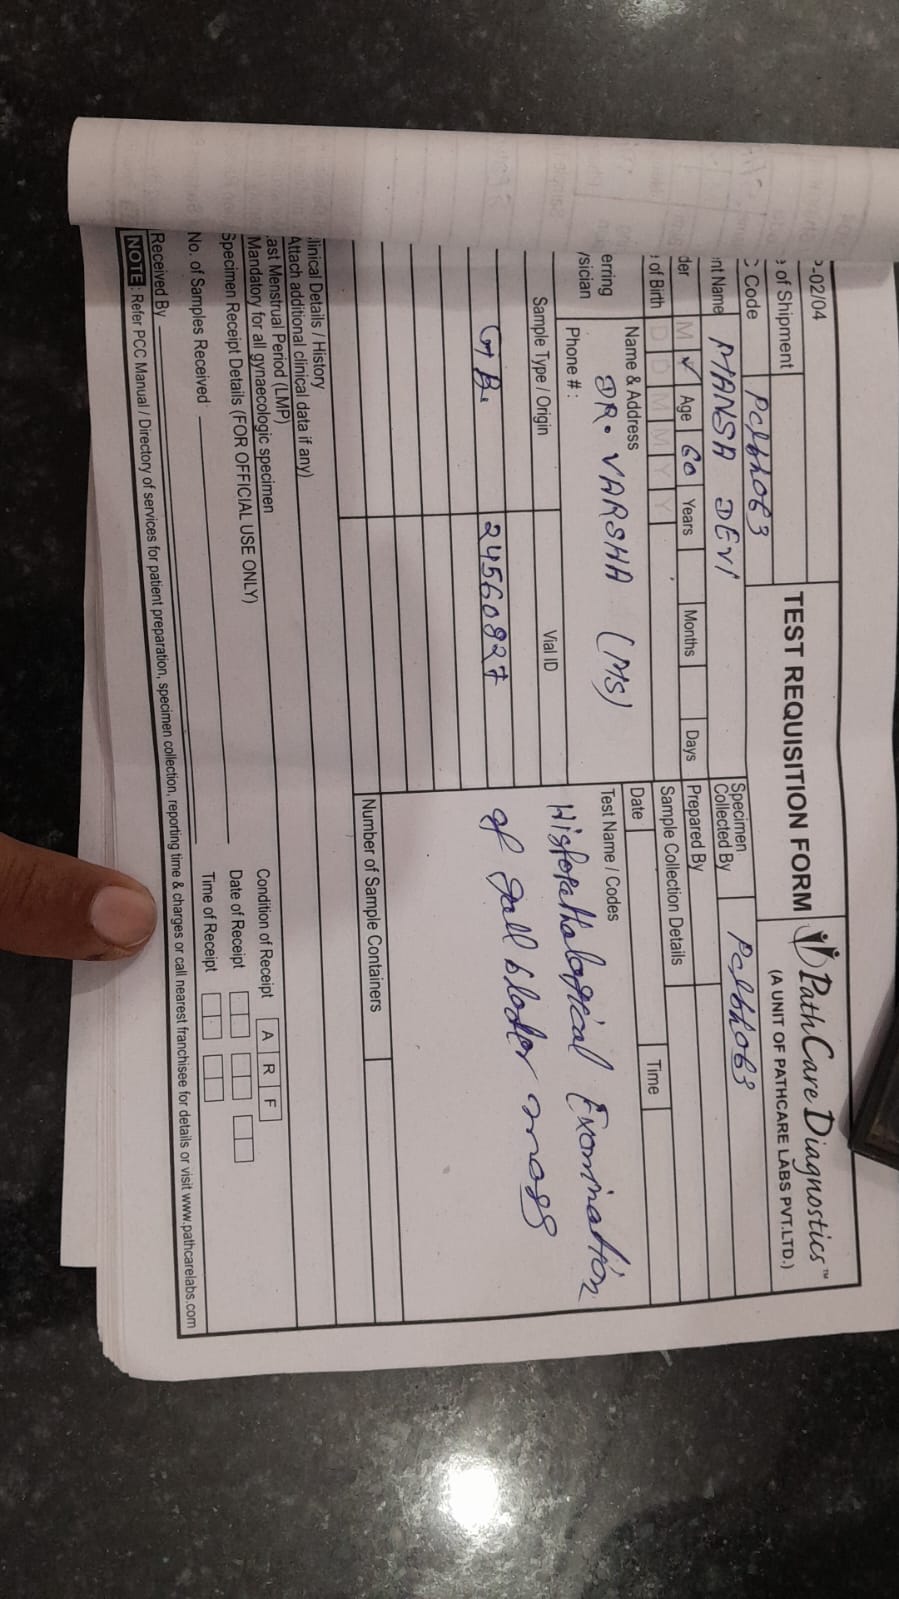 P-02/04
TEST REQUISITION FORM
PathCare Diagnostics™
(A UNIT OF PATHCARE LABS PVT.LTD.)
of Shipment
C Code
Specimen Collected By
nt Name MANSA DEVI
der M ✓ Age 60 Years Months Days
Prepared By
of Birth D D M M Y Y
Sample Collection Details
erring
ysician
Name & Address
DR. VARSHA (MS)
Phone #:
Date
Time
Test Name / Codes
Histopathological Examination
of gall blader mass
Sample Type / Origin
Vial ID
GB. 24560827
Number of Sample Containers
linical Details / History
Attach additional clinical data if any)
ast Menstrual Period (LMP)
Mandatory for all gynaecologic specimen
Specimen Receipt Details (FOR OFFICIAL USE ONLY)
No. of Samples Received
Received By
Condition of Receipt A R F
Date of Receipt
Time of Receipt
NOTE : Refer PCC Manual / Directory of services for patient preparation, specimen collection, reporting time & charges or call nearest franchisee for details or visit www.pathcarelabs.com